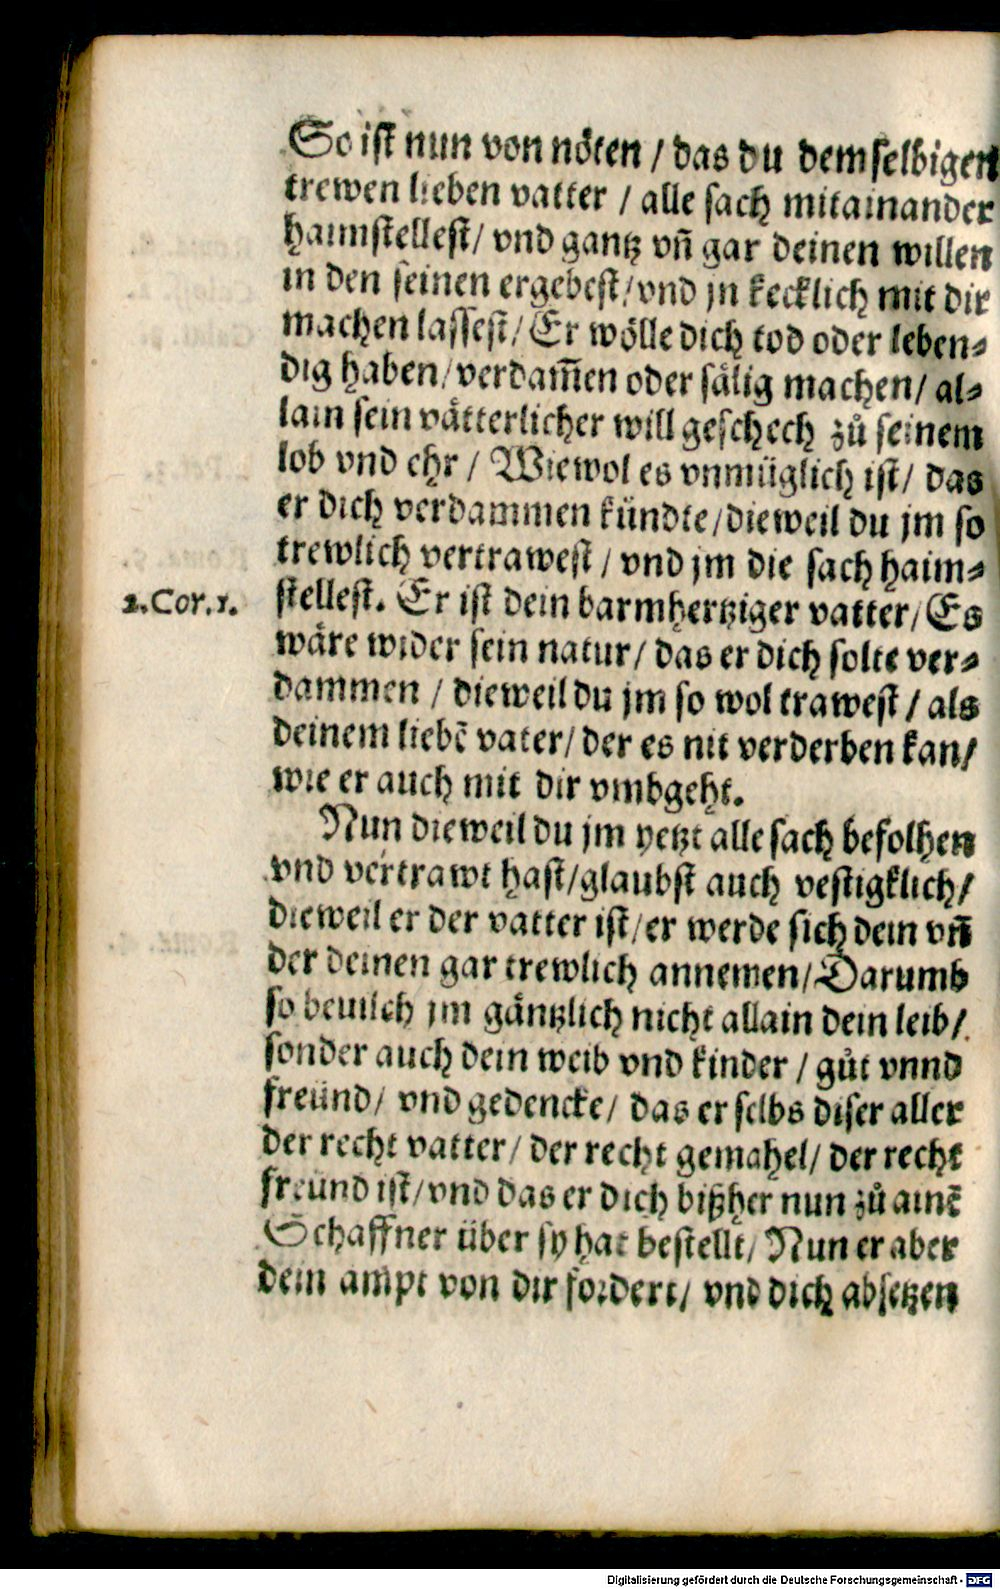 So ist nun von nöten / das du demselbigen
trewen lieben vatter / alle sach mitainander
haimstellest/ vnd gantz vñ gar deinen willen
in den seinen ergebest/ vnd jn kecklich mit dir
machen lassest/ Er wölle dich tod oder leben⸗
dig haben/ verdam̃en oder sälig machen/ al⸗
lain sein vätterlicher will geschech zů seinem
lob vnd ehr / Wiewol es vnmüglich ist/ das
er dich verdammen kündte/ dieweil du jm so
trewlich vertrawest / vnd jm die sach haim⸗
2.Cor.1.
stellest. Er ist dein barmhertziger vatter/ Es
wäre wider sein natur/ das er dich solte ver⸗
dammen / dieweil du jm so wol trawest / als
deinem liebẽ vater/ der es nit verderben kan/
wie er auch mit dir vmbgeht.
Nun dieweil du jm yetzt alle sach befolhen
vnd vertrawt hast/ glaubst auch vestigklich/
dieweil er der vatter ist/ er werde sich dein vñ
der deinen gar trewlich annemen/ Darumb
so beuilch jm gäntzlich nicht allain dein leib/
sonder auch dein weib vnd kinder / gůt vnnd
freünd/ vnd gedencke/ das er selbs diser aller
der recht vatter/ der recht gemahel/ der recht
freünd ist/ vnd das er dich bißher nun zů ainẽ
Schaffner über sy hat bestellt/ Nun er aber
dein ampt von dir fordert/ vnd dich absetzen
Digitalisierung gefördert durch die Deutsche Forschungsgemeinschaft - DFG